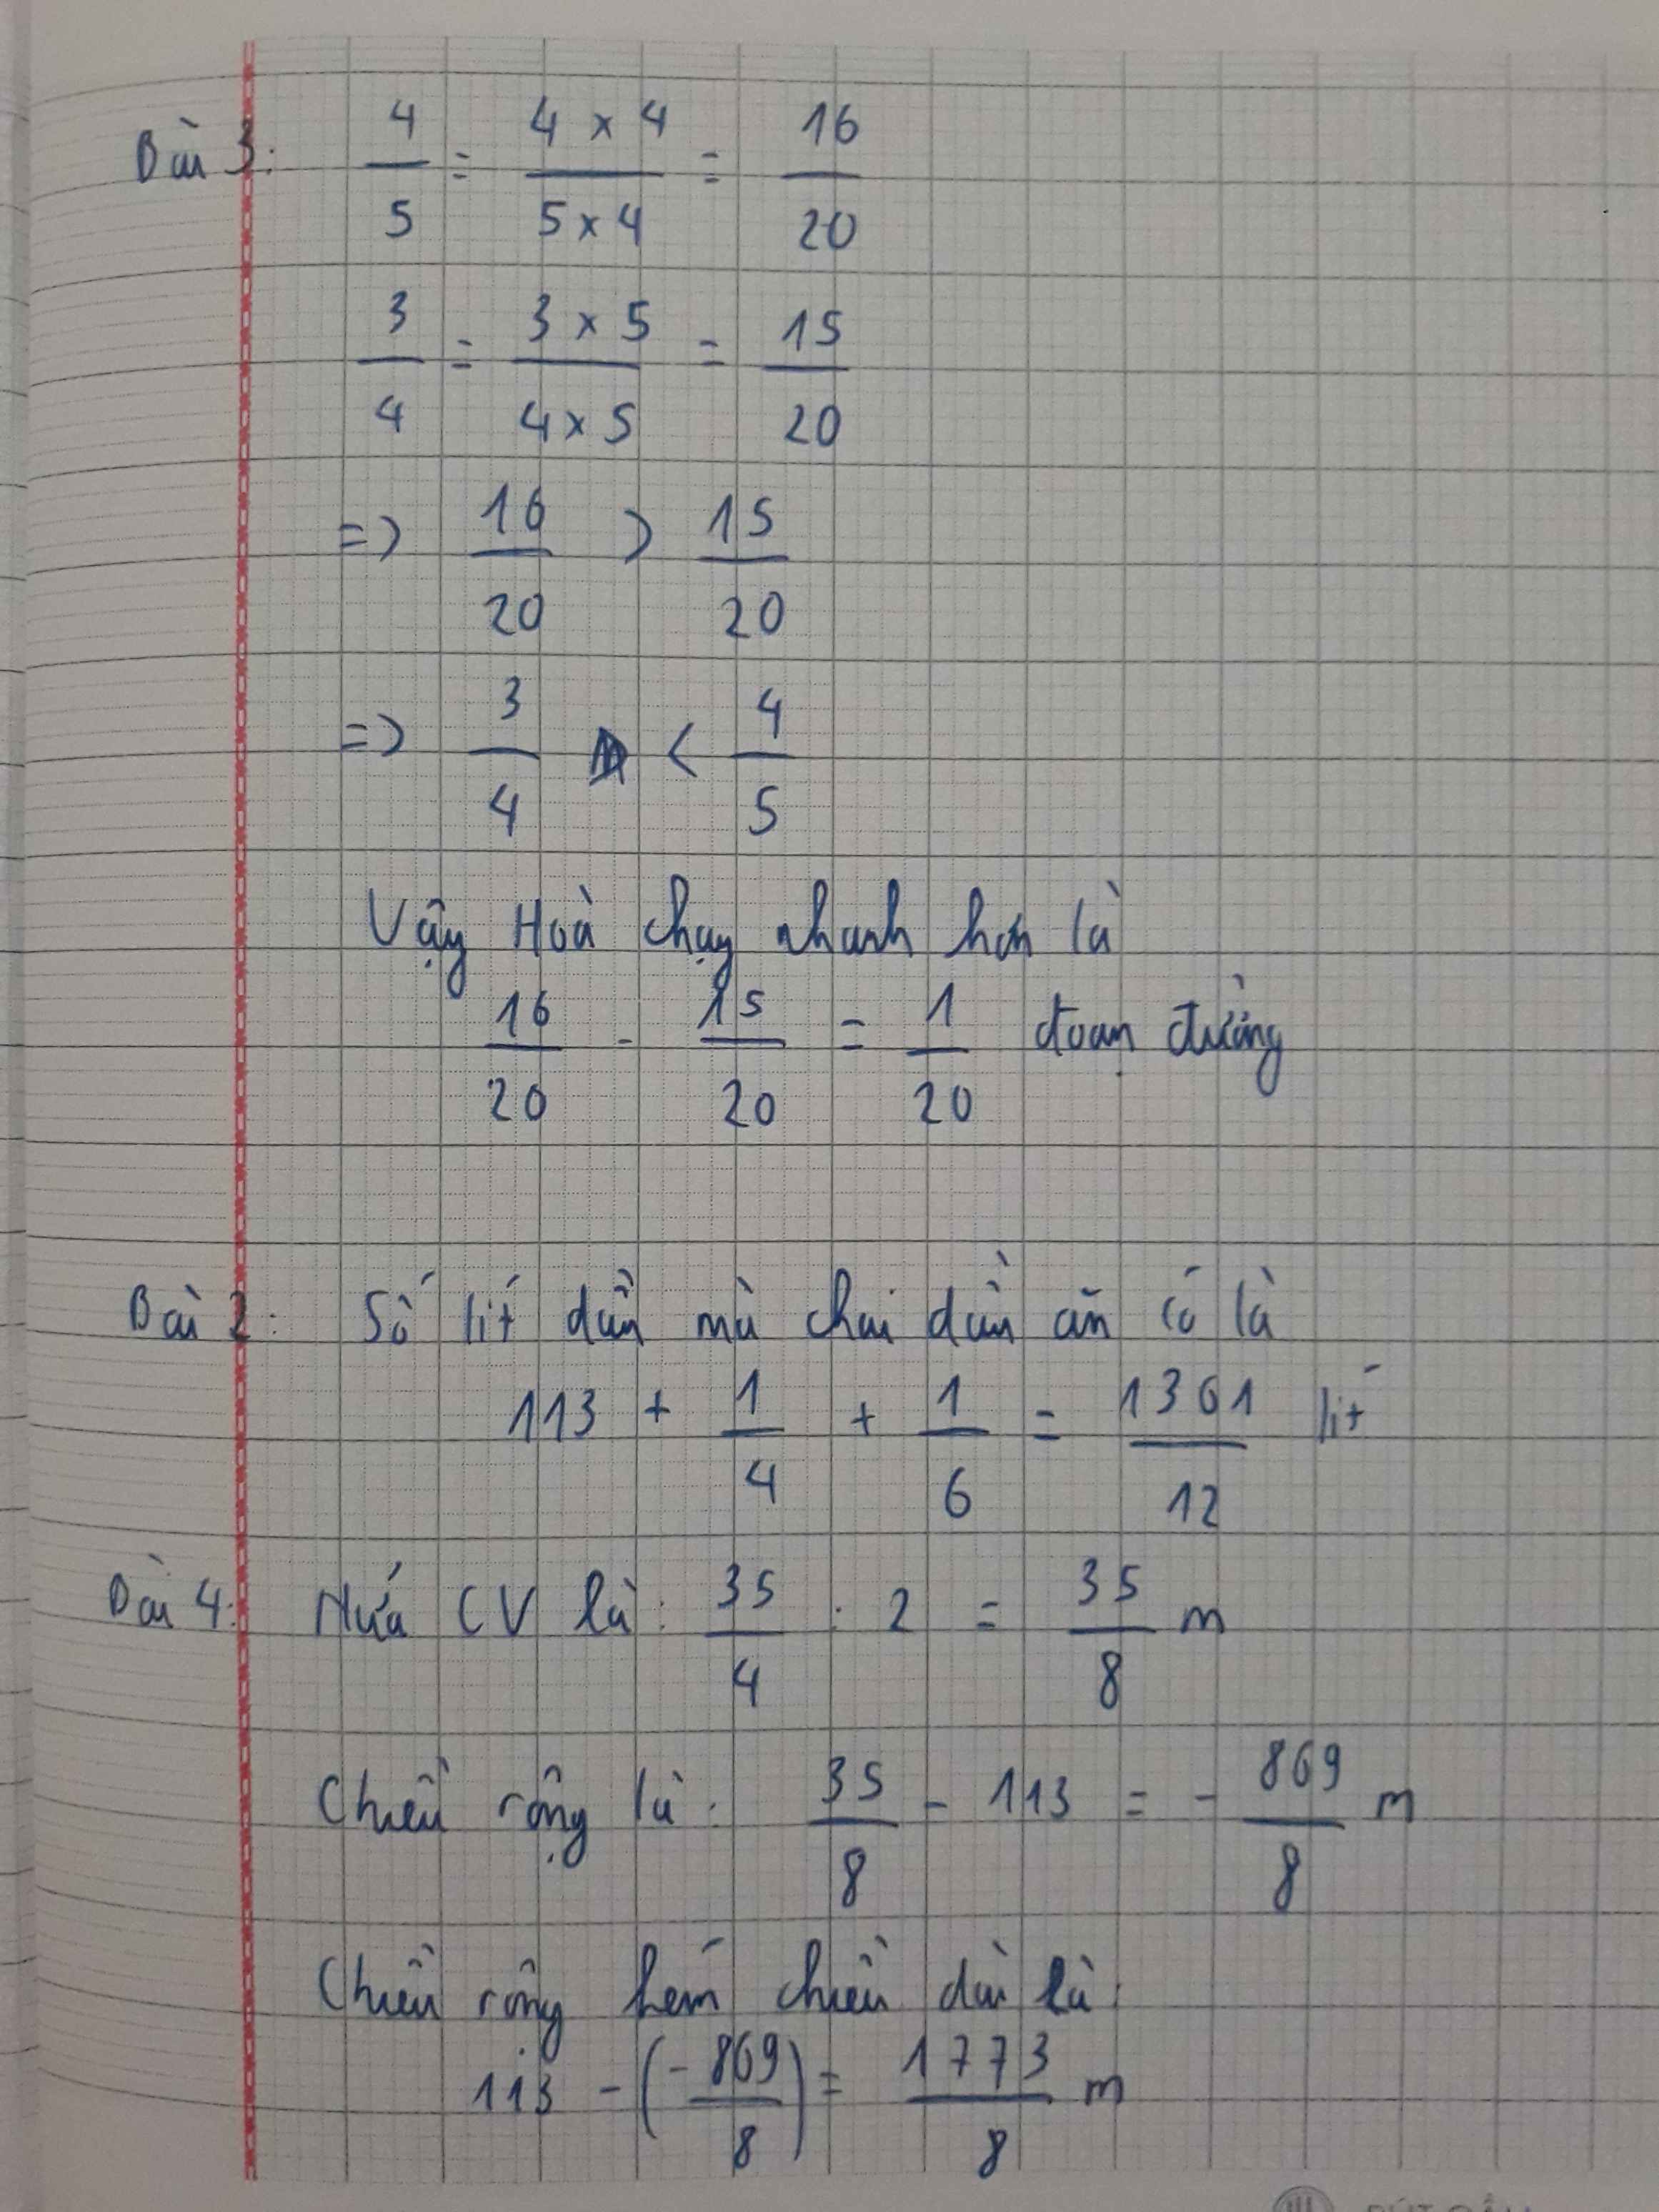 Bài 3: 4/5 = 4 x 4/5 x 4 = 16/20
3/4 = 3 x 5/4 x 5 = 15/20
=> 16/20 > 15/20
=> 3/4 < 4/5
Vậy Hoà chạy nhanh hơn là
16/20 - 15/20 = 1/20 đoạn đường
Bài 2: Số lít dầu mà chai dầu ăn có là
113 + 1/4 + 1/6 = 1361/12 lít
Bài 4: Nửa CV là: 35/4 : 2 = 35/8 m
Chiều rộng là: 35/8 - 113 = - 869/8 m
Chiều rộng kém chiều dài là:
113 - (-869/8) = 1773/8 m